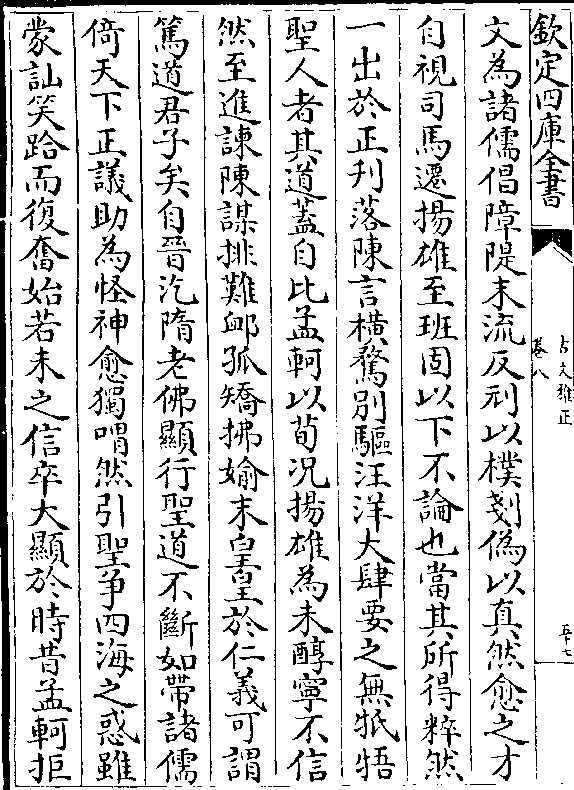 欽定四庫全書
古文雅正
卷八
五十七
文為諸儒倡障隄末流反刓以樸剗偽以真然愈之才
自視司馬遷揚雄至班固以下不論也當其所得粹然
一出於正刋落陳言橫騖別驅汪洋大肆要之無牴牾
聖人者其道蓋自比孟軻以荀况揚雄為未醇寧不信
然至進諫陳謀排難卹孤矯拂媮末皇皇於仁義可謂
篤道君子矣自晉汔隋老佛顯行聖道不斷如帶諸儒
倚天下正議助為怪神愈獨喟然引聖爭四海之惑雖
蒙訕笑跲而復奮始若未之信卒大顯於時昔孟軻拒